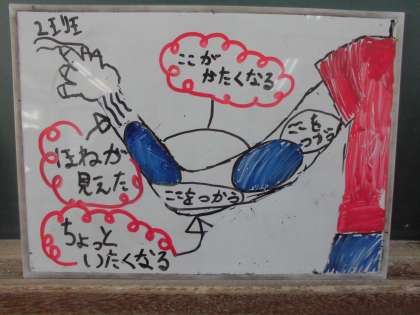 2班
ここが
かたくなる
ほねが
見えた
ここをつかう
ここを
つかう
ちょっと
いたくなる